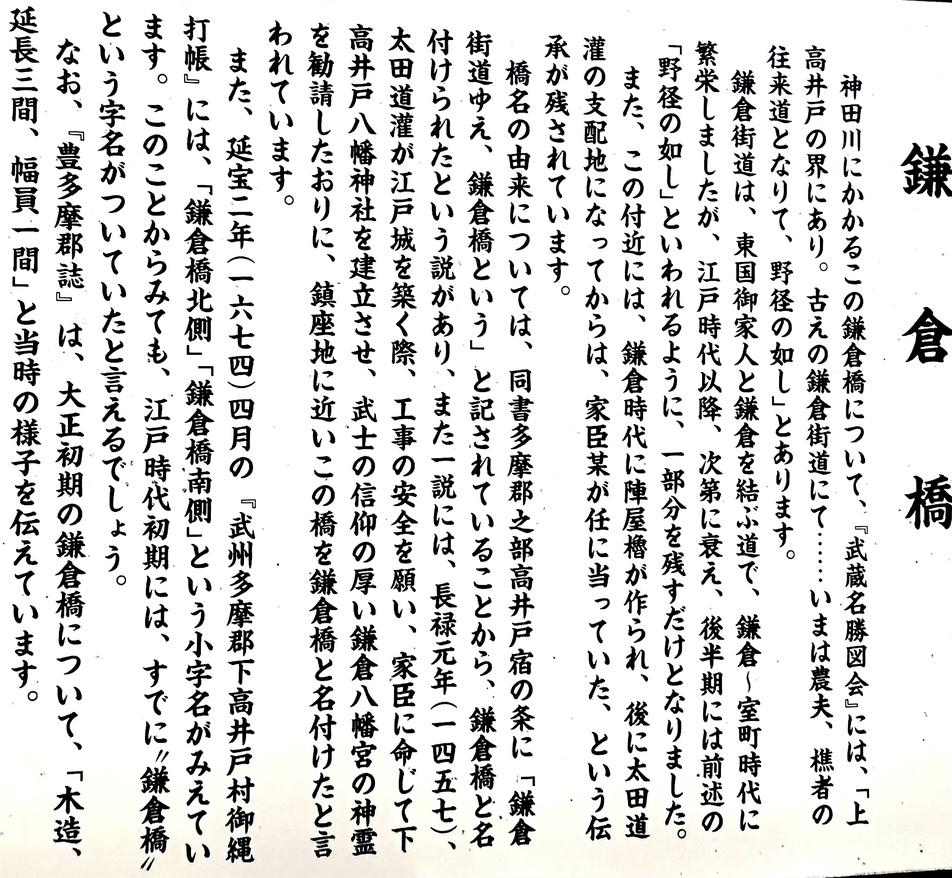 鎌倉橋
神田川にかかるこの鎌倉橋について、『武蔵名勝図会』には、「上
高井戸の界にあり。古えの鎌倉街道にて……いまは農夫、樵者の
往来道となりて、野径の如し」とあります。
鎌倉街道は、東国御家人と鎌倉を結ぶ道で、鎌倉~室町時代に
繁栄しましたが、江戸時代以降、次第に衰え、後半期には前述の
「野径の如し」といわれるように、一部分を残すだけとなりました。
また、この付近には、鎌倉時代に陣屋櫓が作られ、後に太田道
灌の支配地になってからは、家臣某が任に当っていた、という伝
承が残されています。
橋名の由来については、同書多摩郡之部高井戸宿の条に「鎌倉
街道ゆえ、鎌倉橋という」と記されていることから、鎌倉橋と名
付けられたという説があり、また一説には、長禄元年(一四五七)、
太田道灌が江戸城を築く際、工事の安全を願い、家臣に命じて下
高井戸八幡神社を建立させ、武士の信仰の厚い鎌倉八幡宮の神霊
を勧請したおりに、鎮座地に近いこの橋を鎌倉橋と名付けたと言
われています。
また、延宝二年(一六七四)四月の『武州多摩郡下高井戸村御縄
打帳』には、「鎌倉橋北側」「鎌倉橋南側」という小字名がみえてい
ます。このことからみても、江戸時代初期には、すでに〝鎌倉橋〟
という字名がついていたと言えるでしょう。
なお、『豊多摩郡誌』は、大正初期の鎌倉橋について、「木造、
延長三間、幅員一間」と当時の様子を伝えています。